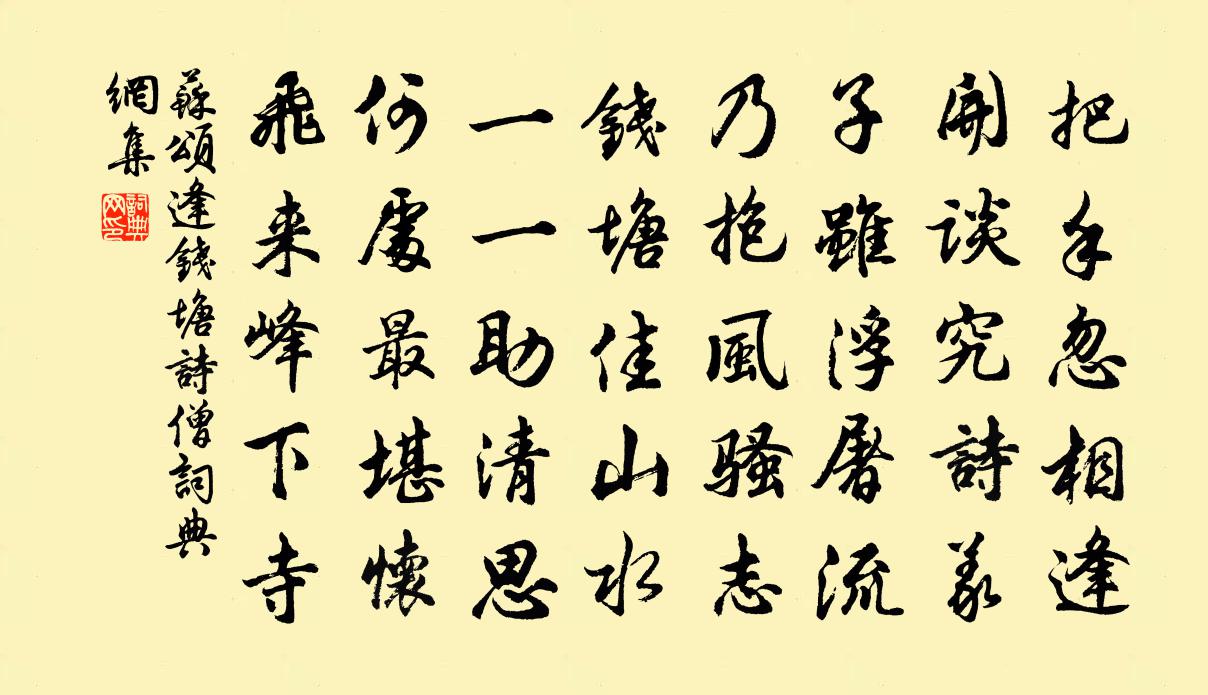 把手忽相逢
開谈究詩義
子雖浮屠流
乃抱風騷志
錢塘佳山水
一一助清思
何處最堪懷
飛来峰下寺
蘇頌逢錢塘詩僧詞典
網集
詞典
网印